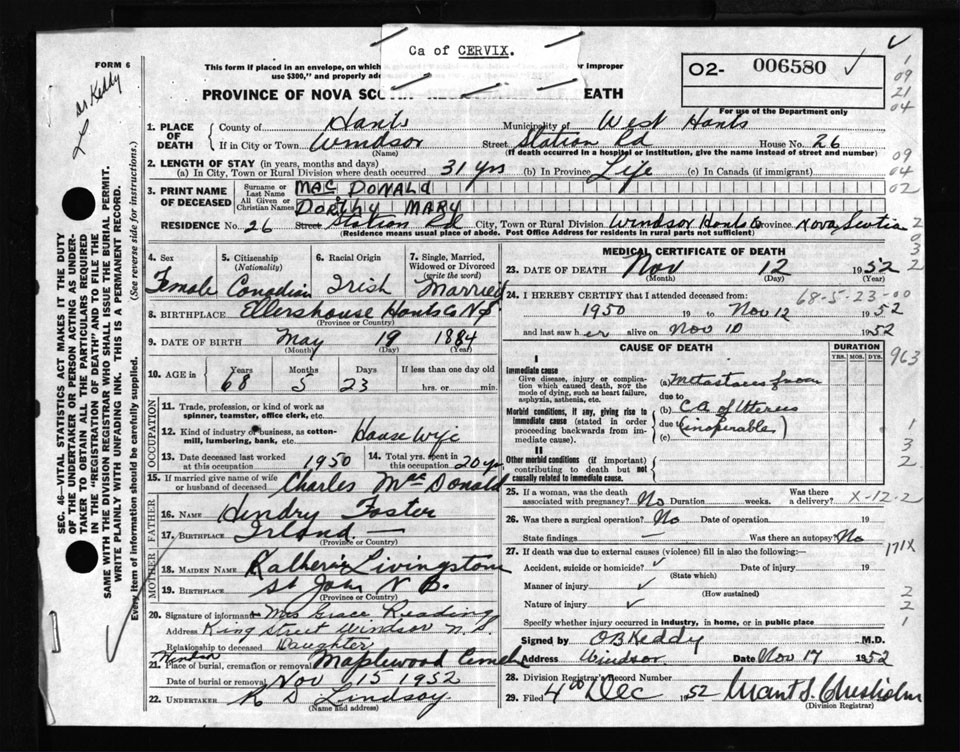 Ca of CERVIX.
FORM 6
Dr Keddy
This form if placed in an envelope, on which
or improper
use $300," and properly ad
O2- 006580
PROVINCE OF NOVA SCO
EATH
For use of the Department only
1. PLACE OF DEATH
County of Hants Municipality of West Hants
If in City or Town Windsor Street Station Rd House No. 26
(Name) (If death occurred in a hospital or institution, give the name instead of street and number)
2. LENGTH OF STAY (in years, months and days)
(a) In City, Town or Rural Division where death occurred 31 yrs (b) In Province Life (c) In Canada (if immigrant)
3. PRINT NAME OF DECEASED
Surname or Last Name MAC DONALD
All Given or Christian Names DORTHY MARY
RESIDENCE No. 26 Street Station Rd City, Town or Rural Division Windsor Hants Co Province Nova Scotia
(Residence means usual place of abode. Post Office Address for residents in rural parts not sufficient)
4. Sex Female
5. Citizenship (Nationality) Canadian
6. Racial Origin Irish
7. Single, Married, Widowed or Divorced (write the word) Married
8. BIRTHPLACE Ellershouse Hants Co N.S.
(Province or Country)
9. DATE OF BIRTH May 19 1884
(Month) (Day) (Year)
10. AGE in Years 68 Months 5 Days 23 If less than one day old
hrs. or min.
OCCUPATION
11. Trade, profession, or kind of work as spinner, teamster, office clerk, etc.
12. Kind of industry or business, as cotton-mill, lumbering, bank, etc. House Wife
13. Date deceased last worked at this occupation 1950
14. Total yrs. spent in this occupation 20 yr
15. If married give name of wife or husband of deceased Charles MacDonald
FATHER
16. NAME Hendry Foster
17. BIRTHPLACE Irland
(Province or Country)
MOTHER
18. MAIDEN NAME Katherin Livingstone
19. BIRTHPLACE St John N.B.
(Province or Country)
20. Signature of informant Mrs Grace Reading
Address King Street Windsor N.S.
Relationship to deceased Daughter
21. Place of burial, cremation or removal Maplewood Cem
Date of burial or removal Nov 15 1952
22. UNDERTAKER R D Lindsay
(Name and address)
MEDICAL CERTIFICATE OF DEATH
23. DATE OF DEATH Nov 12 1952
(Month) (Day) (Year)
68-5-23-00
24. I HEREBY CERTIFY that I attended deceased from:
1950 19 to Nov 12 1952
and last saw her alive on Nov 10 1952
CAUSE OF DEATH
DURATION
YRS. MOS. DYS.
I
Immediate cause
Give disease, injury or complication which caused death, NOT the mode of dying, such as heart failure, asphyxia, asthenia, etc.
(a) Metastases from
due to
Morbid conditions, if any, giving rise to immediate cause (stated in order proceeding backwards from immediate cause).
(b) CA of Uterus
due to (inoperable)
(c)
II
Other morbid conditions (if important) contributing to death but not causally related to immediate cause.
25. If a woman, was the death associated with pregnancy? No Duration weeks. Was there a delivery? X-12-2
26. Was there a surgical operation? No Date of operation 19
State findings — Was there an autopsy? No
27. If death was due to external causes (violence) fill in also the following:—
Accident, suicide or homicide? Date of injury 19
(State which)
Manner of injury
(How sustained)
Nature of injury
Specify whether injury occurred in industry, in home, or in public place
Signed by O B Keddy M.D.
Address Windsor Date Nov 17 1952
28. Division Registrar's Record Number
29. Filed 4th Dec 1952 Grant S. Chisholm
(Division Registrar)
1
09
21
04
09
04
02
2
0
3
2
963
1
3
2
171X
2
2
1
SEC. 46—VITAL STATISTICS ACT MAKES IT THE DUTY
OF THE UNDERTAKER OR PERSON ACTING AS UNDERTAKER TO OBTAIN ALL THE PARTICULARS REQUIRED
IN THE "REGISTRATION OF DEATH" AND TO FILE THE
SAME WITH THE DIVISION REGISTRAR WHO SHALL ISSUE THE BURIAL PERMIT.
WRITE PLAINLY WITH UNFADING INK. THIS IS A PERMANENT RECORD.
Every item of information should be carefully supplied.
(See reverse side for instructions).